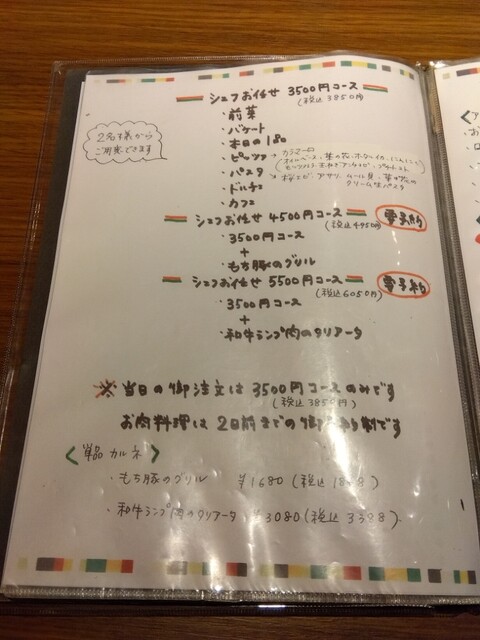 シェフお任せ 3500円コース
(税込 3850円)
・前菜
・バケット
・本日の1品
・ピッツァ
・パスタ
・ドルチェ
・カフェ
2名様から
ご用意できます
シェフお任せ 4500円コース
(税込 4950円)
要予約
・3500円コース
+
・もち豚のグリル
シェフお任せ 5500円コース
(税込 6050円)
要予約
・3500円コース
+
・和牛ランプ肉のタリアータ
※当日の御注文は 3500円コースのみです
(税込 3850円)
お肉料理は 2日前までの御予約制です
<単品 カルネ>
・もち豚のグリル ¥1680 (税込 1848)
・和牛ランプ肉のタリアータ ¥3080 (税込 3388)